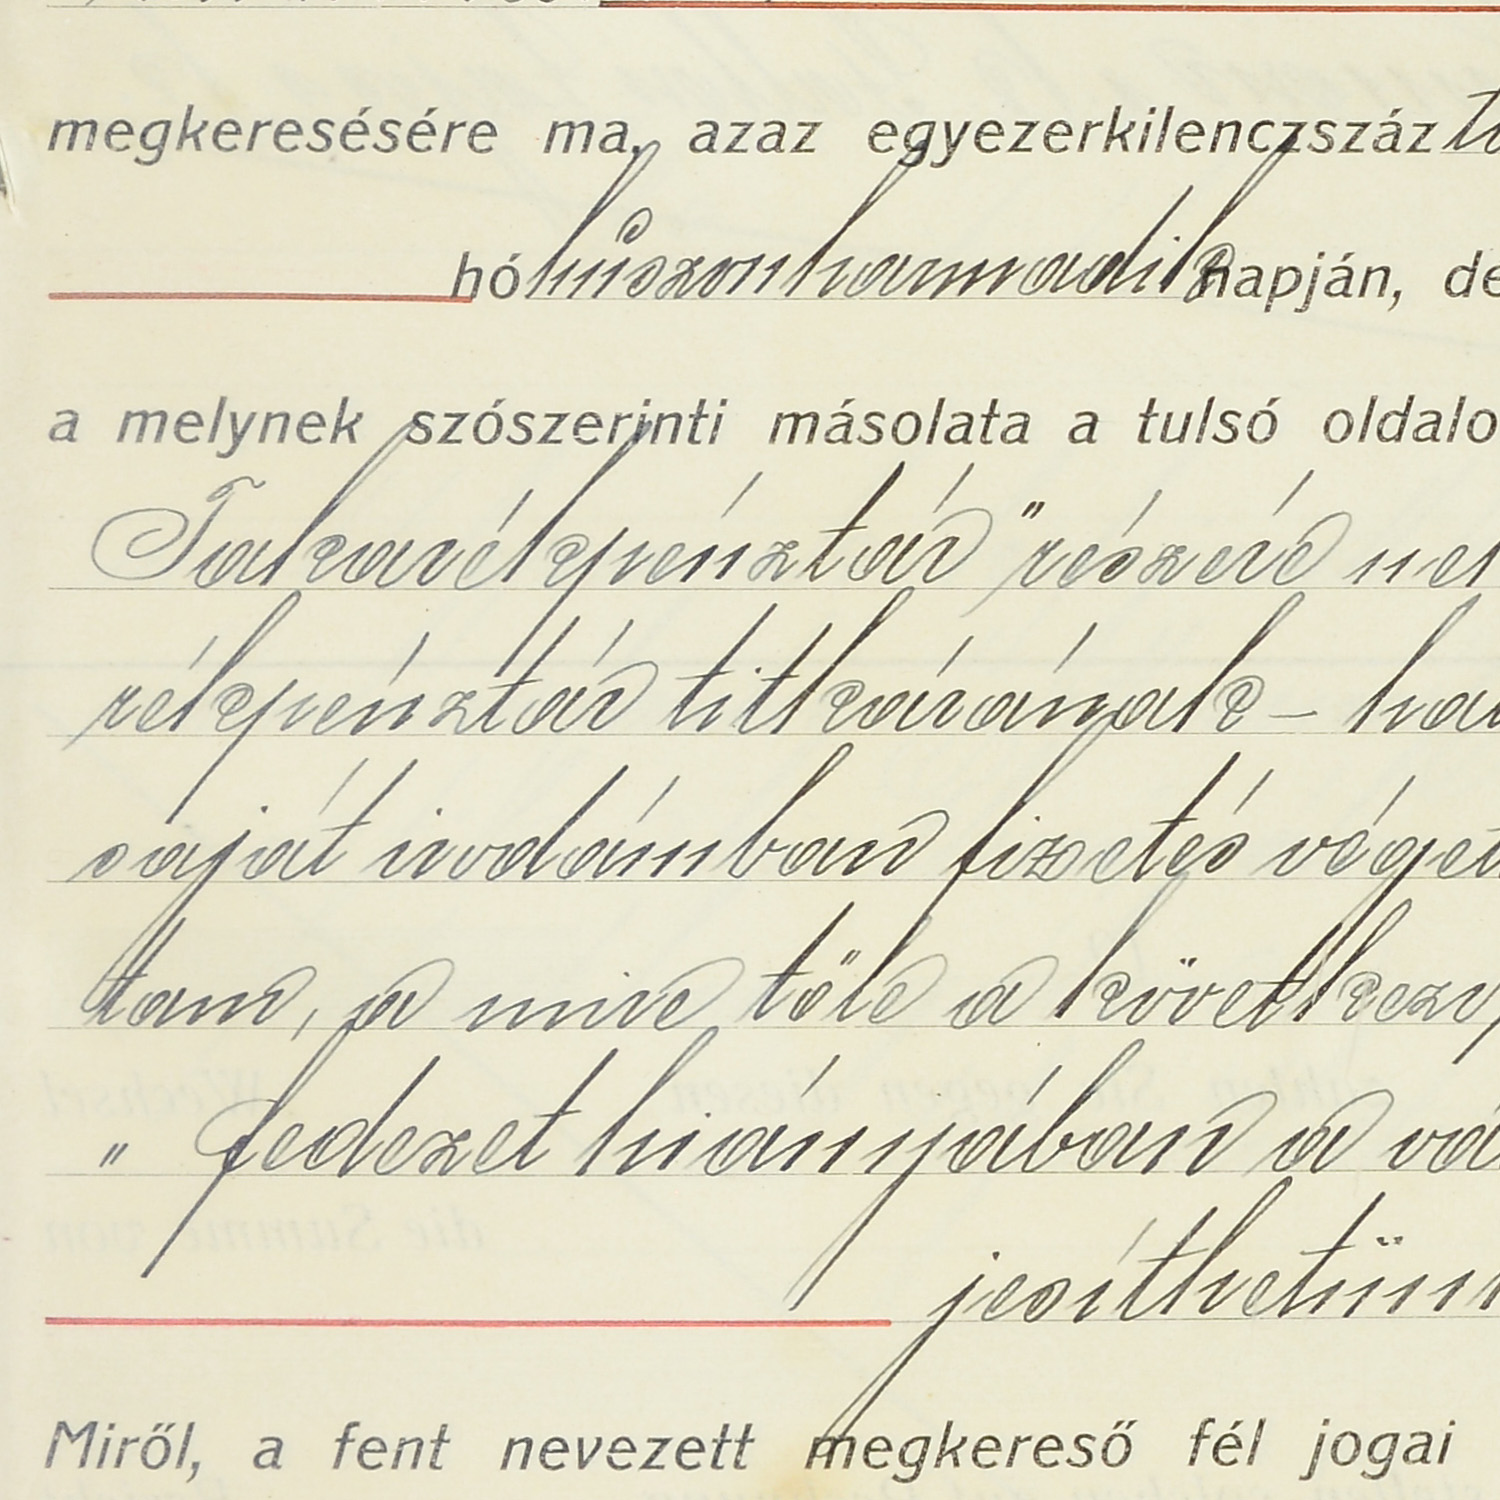 megkeresésére ma, azaz egyezerkilenczszáz
hó huszonharmadik napján, de
a melynek szószerinti másolata a tulsó oldalo
Takarékpénztár" részére
rékpénztár titkárának –
saját irodámban fizetés végett
tam, a mire tőle a következő
" fedezet hiányában a vá
jesíthetünk
Miről, a fent nevezett megkereső fél jogai